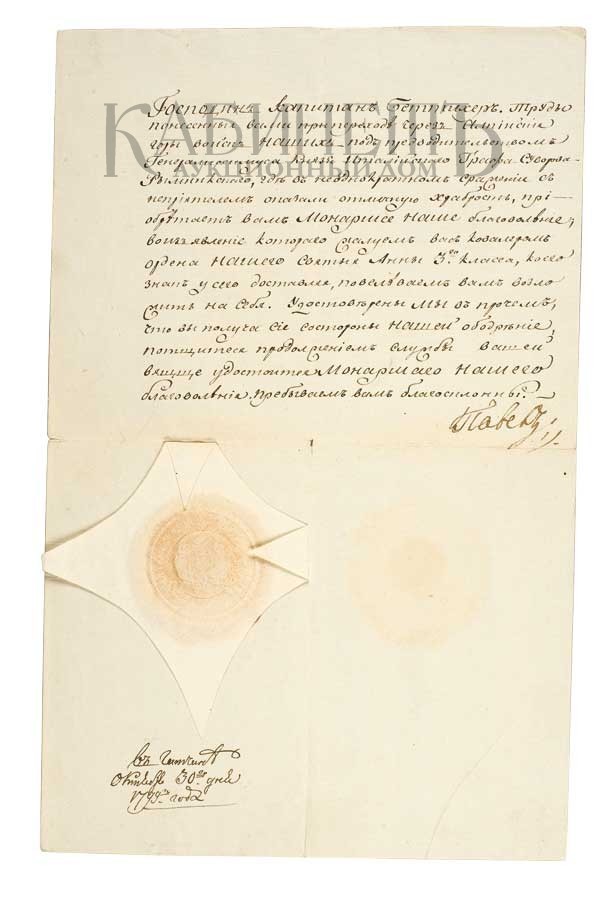 Господинъ Капитанъ Беттихеръ. Труды
понесенныя вами при переходѣ черезъ Альпійскіи
горы войскъ НАШИХЪ подъ предводительствомъ
Генералиссимуса Князя Италійскаго Графа Суворова-
Рымникскаго, гдѣ въ неоднократномъ сраженіи съ
непріятелемъ оказали отличную храбрость, прі-
обрѣтаетъ вамъ МОНАРШЕЕ НАШЕ благоволѣніе;
воизъявленіе котораго жалуемъ васъ кавалеромъ
ордена НАШЕГО Святыя Анны 3го класса, коего
знакъ у сего доставляя, повелѣваемъ вамъ возло
жить на себя. Удостовѣрены МЫ въ прочемъ,
что вы получа сіе состороны НАШЕЙ ободрѣніе,
потщитеся продолженіемъ службы вашей
вящще удостоится МОНАРШАГО НАШЕГО
благоволѣнія. Пребываемъ вамъ благосклонны.
Павелъ
въ Гатчинѣ
Октября 30го дня
1799го года
КАБИНЕТЪ
АУКЦИОННЫЙ ДОМ